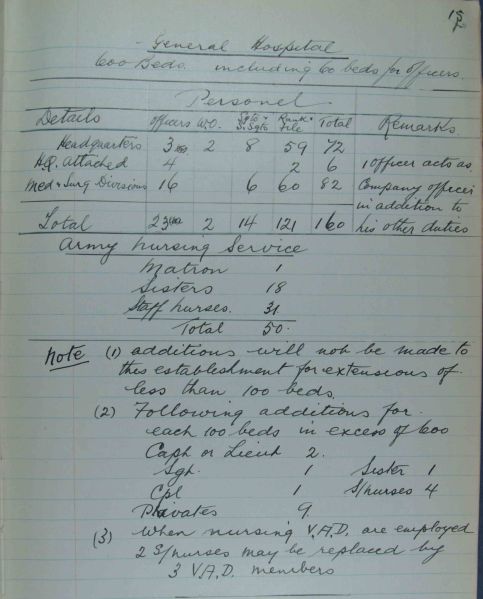 General Hospital
600 Beds. including 60 beds for Officers.
Personel
Details Officers W.O. Sgts & S. Sgts Rank & File Total Remarks.
Headquarters 3 2 8 59 72
H.Q. Attached 4 2 6 1 Officer acts as
Med & Surg Divisions 16 6 60 82 Company officer
in addition to
Total 23 2 14 121 160 his other duties
Army Nursing Service
Matron 1
Sisters 18
Staff Nurses. 31
Total 50.
Note (1) additions will not be made to
this establishment for extensions of
less than 100 beds.
(2) Following additions for
each 100 beds in excess of 600
Capt or Lieut 2.
Sgt. 1 Sister 1
Cpl 1 S/nurses 4
Privates 9
(3) When nursing V.A.D. are employed
2 S/nurses may be replaced by
3 V.A.D. members